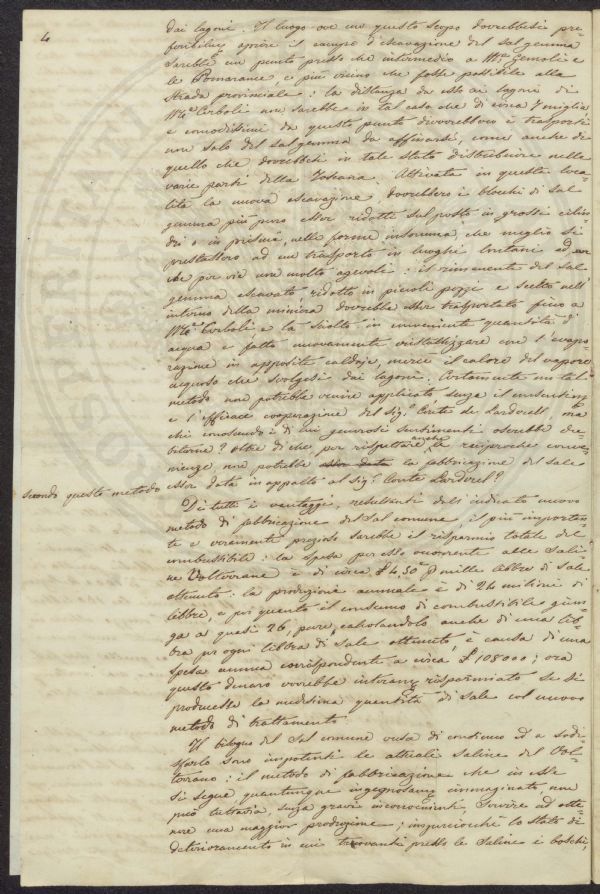 4
dai lagoni. Il luogo ove con questo scopo dovrebbesi pre=
feribilmte aprire il campo d'escavazione del salgemma
sarebbe un punto presso che intermedio a Mte Gemoli e
le Pomarance, e più vicino che fosse possibile alla
strada provinciale: la distanza da esso ai lagoni di
Mte Cerboli non sarebbe in tal caso che di circa 7 miglia
e comodissimi da questo punto diverrebbero i trasporti
non solo del salgemma da affinarsi, come anche di
quello che dovrebbesi in tale stato distribuire nelle
varie parti della Toscana. Attivata in questa loca=
lità la nuova escavazione, dovrebbero i blocchi di sal
gemma più puro esser ridotti sul posto in grossi cilin
dri o in prismi, nelle forme insomma che meglio si
prestassero ad un trasporto in luoghi lontani ed an
che per vie non molto agevoli: il rimanente del sal
gemma escavato, ridotto in piccoli pezzi e scelto nell'
interno della miniera dovrebbe esser trasportato fino a
Mte Cerboli e là sciolto in conveniente quantità d'
acqua e fatto nuovamente cristallizzare con l'evapo=
razione in apposite caldaje, mercè il calore del vapore
acquoso che svolgesi dai lagoni. Certamente un tal
metodo non potrebbe venire applicato senza il consentim.to
e l'efficace cooperazione del Sig.r Conte de Larderell ma
chi conoscendo i di lui generosi sentimenti oserebbe du=
bitarne? oltre di che per rispettare anche le reciproche conve=
nienze non potrebbe esser data la fabbricazione del sale
secondo questo metodo esser data in appalto al Sig.r Conte Larderel?
Di tutti i vantaggi, resultanti dall'indicato nuovo
metodo di fabbricazione del Sal comune, il più importan=
te e veramente prezioso sarebbe il risparmio totale del
combustibile: la spesa per esso occorrente alle Sali=
ne Volterrane è di circa £ 4,50 p mille libbre di Sale
ottenuto: la produzione annuale è di 24 milioni di
libbre, e per quanto il consumo di combustibile giun=
ga a quasi 26, pure, calcolandolo anche di una lib=
bra per ogni libbra di Sale ottenuto, è causa di una
spesa annua corrispondente a circa £ 108000; ora
questo denaro verrebbe interamte risparmiato se si
producesse la medesima quantità di Sale col nuovo
metodo di trattamento.
Il bisogno del Sal comune cresce di continuo ed a sodi=
sfarlo sono impotenti le attuali Saline del Vol=
terrano: il metodo di fabbricazione che in esse
si segue quantunque ingegnosamte immaginato, non
può tuttavia senza gravi inconvenienti, servire ad otte=
nere una maggior produzione; imperciocchè lo stato di
deterioramento in cui trovansi presso le Saline i boschi,